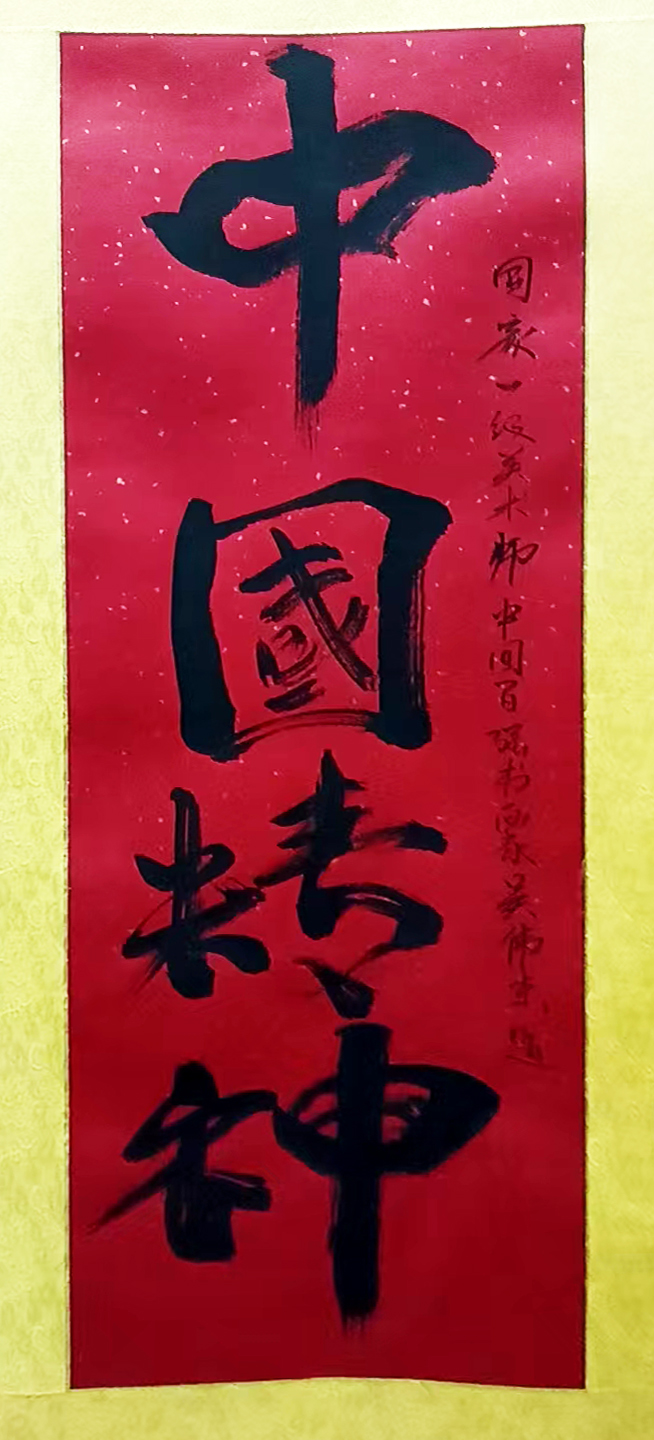 中國精神
国家一级美术师中国百强书画家吴伟生题